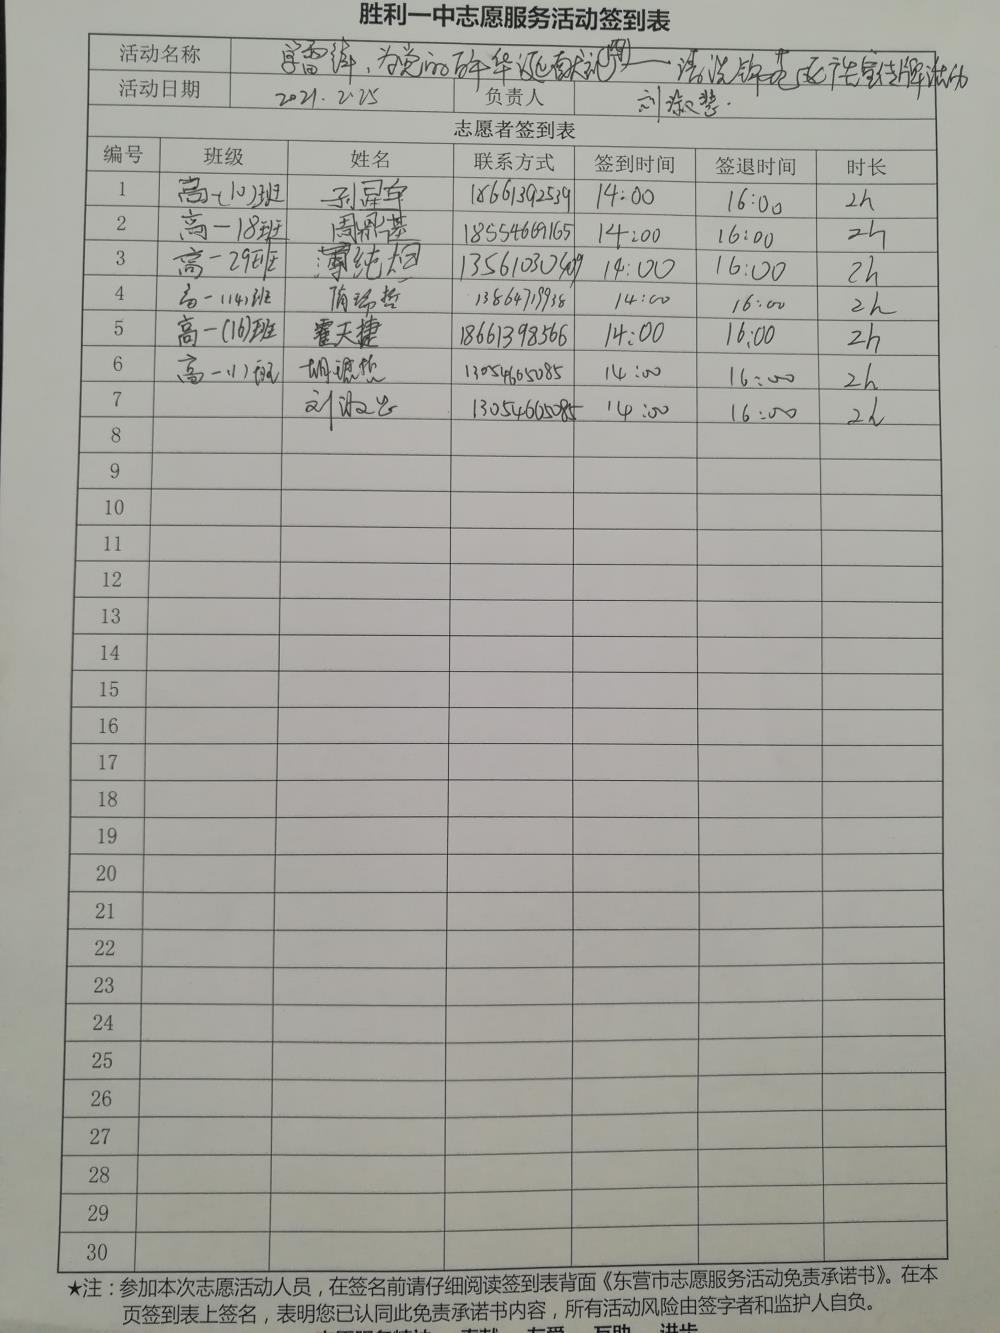 胜利一中志愿服务活动签到表
活动名称 学雷锋、为党的百年华诞献礼 清洗锦苑 社区宣传牌活动
活动日期 2021.2.25 负责人 刘淑慧.
志愿者签到表
编号 班级 姓名 联系方式 签到时间 签退时间 时长
1 高一(10)班 18661392539 14:00 16:00 2h
2 高一18班 周鼎基 18554669165 14:00 16:00 2h
3 高一29班 薄纯旭 14:00 16:00 2h
4 高一(14)班 隋瑞哲 13864719938 14:00 16:00 2h
5 高一(16)班 霍天捷 18661398566 14:00 16:00 2h
6 高一(1)班 13054665085 14:00 16:00 2h
7 13054665085 14:00 16:00 2h
8
9
10
11
12
13
14
15
16
17
18
19
20
21
22
23
24
25
26
27
28
29
30
★注：参加本次志愿活动人员，在签名前请仔细阅读签到表背面《东营市志愿服务活动免责承诺书》。在本
页签到表上签名，表明您已认同此免责承诺书内容，所有活动风险由签字者和监护人自负。
志愿服务精神 奉献 友爱 互助 进步